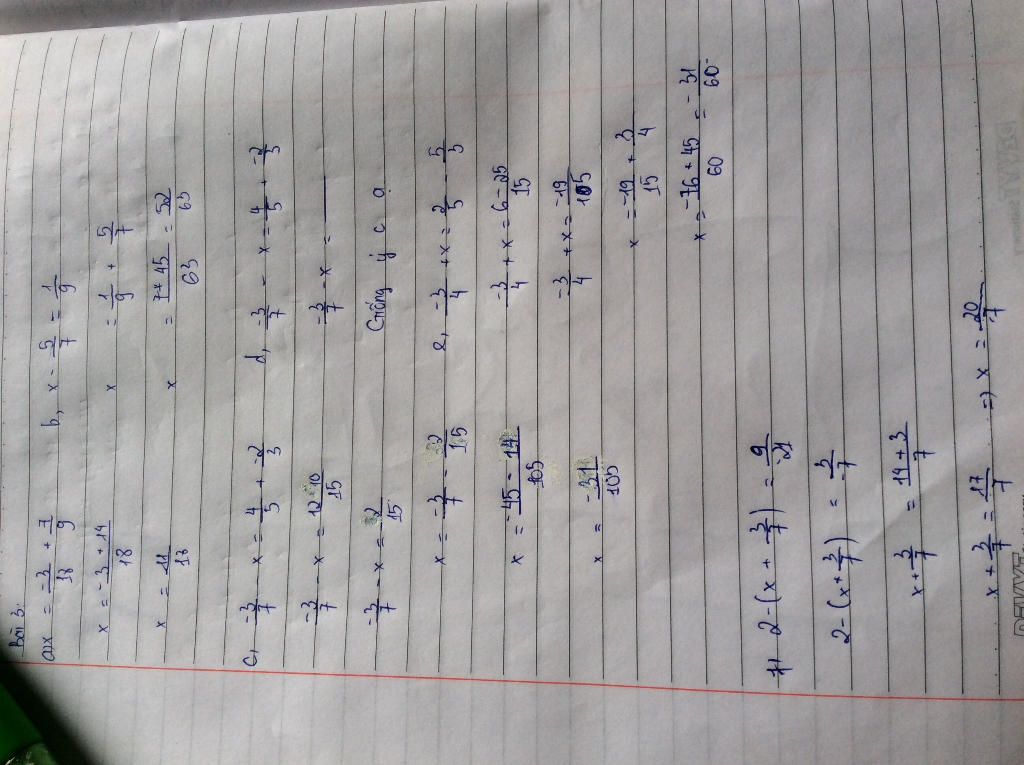 Bài 3:
a) x = -3/18 + 7/9
x = (-3 + 14)/18
x = 11/18
b, x - 5/7 = 1/9
x = 1/9 + 5/7
x = (7 + 45)/63 = 52/63
c, -3/7 - x = 4/5 + -2/3
-3/7 - x = (12 - 10)/15
-3/7 - x = 2/15
x = -3/7 - 2/15
x = (-45 - 14)/105
x = -31/105
d, -3/7 - x = 4/5 + -2/3
-3/7 - x =
Giống ý c ạ
e, -3/4 + x = 2/5 - 5/3
-3/4 + x = (6 - 25)/15
-3/4 + x = -19/15
x = -19/15 + 3/4
x = (-76 + 45)/60 = -31/60
f) 2 - (x + 3/7) = 9/-21
2 - (x + 3/7) = 3/-7
x + 3/7 = (14 + 3)/7
x + 3/7 = 17/7 => x = 20/7